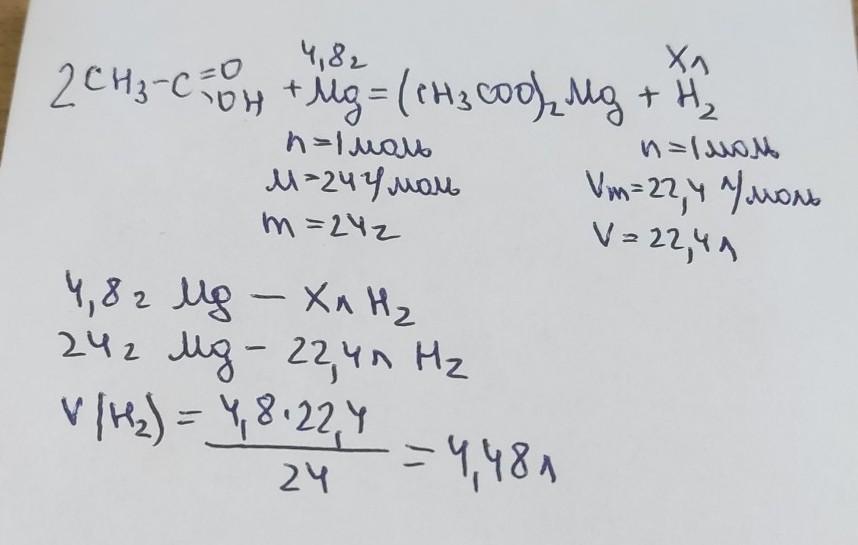 4,8г Xл
2CH3-C=O -OH + Mg = (CH3COO)2Mg + H2
n=1моль n=1моль
M=24г/моль Vm=22,4 л/моль
m=24г V=22,4л
4,8г Mg — Xл H2
24г Mg - 22,4л H2
V(H2) = 4,8·22,4 / 24 = 4,48л